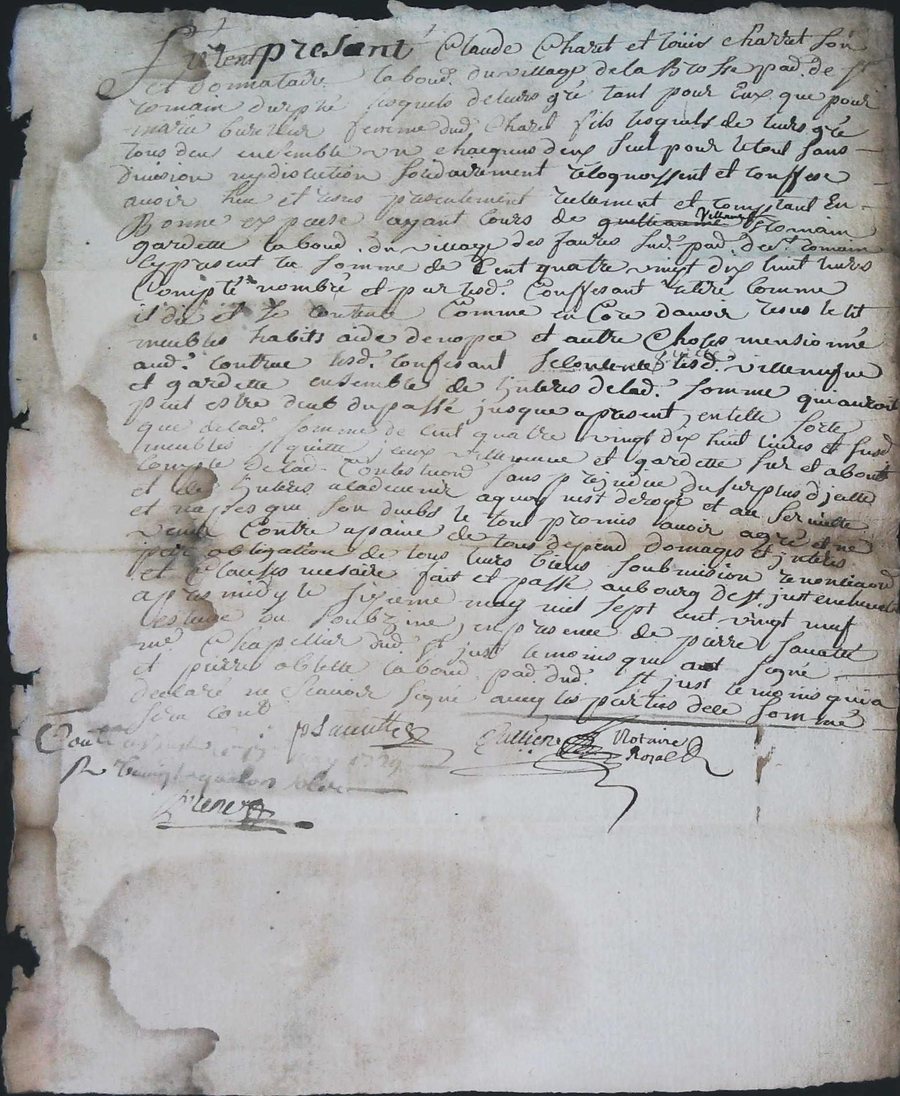 present Claude Charet et louis charret son
et donnataire labour. du village de la Brosse pad. de St
romain durphé lesquels de leurs gré tant pour Eux que pour
marie femme dud. Charet fils lesquels de leurs gré
tous deux ensemble un chacquns deux seul pour le tout sans
division ny discution solidairement recognoissent et confesse
avoir heu et receu presentement reellement et comptant En
Bonne expesse ayant cours de guilleaume villeneufve et romain
gardette laboud. du village des faures sud. pad. de St. romain
cy present la somme de Cent quatre vingt dix huit livres
Compté nombré et par lesd. Confessant retiré Comme
il dit et se contente Comme en Core d'avoir receu le lit
meubles habits aide de nopce et autre Choses mensionné
aud. contract lesd. confessant se contente lesd. villeneufve
et gardette ensembles de linteres de lad. somme qui auroit
peut estre deub du passé jusque apresent, en telle sorte
que de lad. somme de Cent quatre vingt dix huit livres et susd.
meubles quitte iceux villeneuve et gardette sur et about
compte de lad. Constitution sans prejudice du surplus d'icelle
et des interes aladvenir aquoy n'est derogé et au
et que son le tout promis avoir agré et ne
venir Contre apaine de tous depend domages et interes
par obligation de tous leurs biens soubmision renontiaond
et Clauses necesaire fait et passé au bourg de St. just en chevalet
apres midy le sixieme may mil sept cent vingt neuf
en presence de pierre sauatte
me Chapellier dud. St just temoins que a signé
et pierre laboud. pad. dud. St just temoins qui a
declaré ne scavoir signé aussy les parties de ce sommé
P Sauatte Notaire
Royal
1729